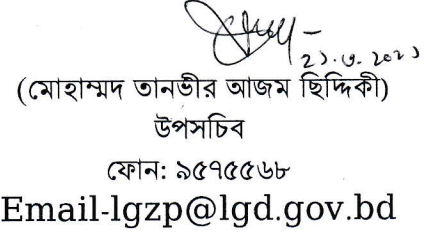 ২১.৩.২০২১
(মোহাম্মদ তানভীর আজম ছিদ্দিকী)
উপসচিব
ফোন: ৯৫৭৫৫৬৮
Email-lgzp@lgd.gov.bd